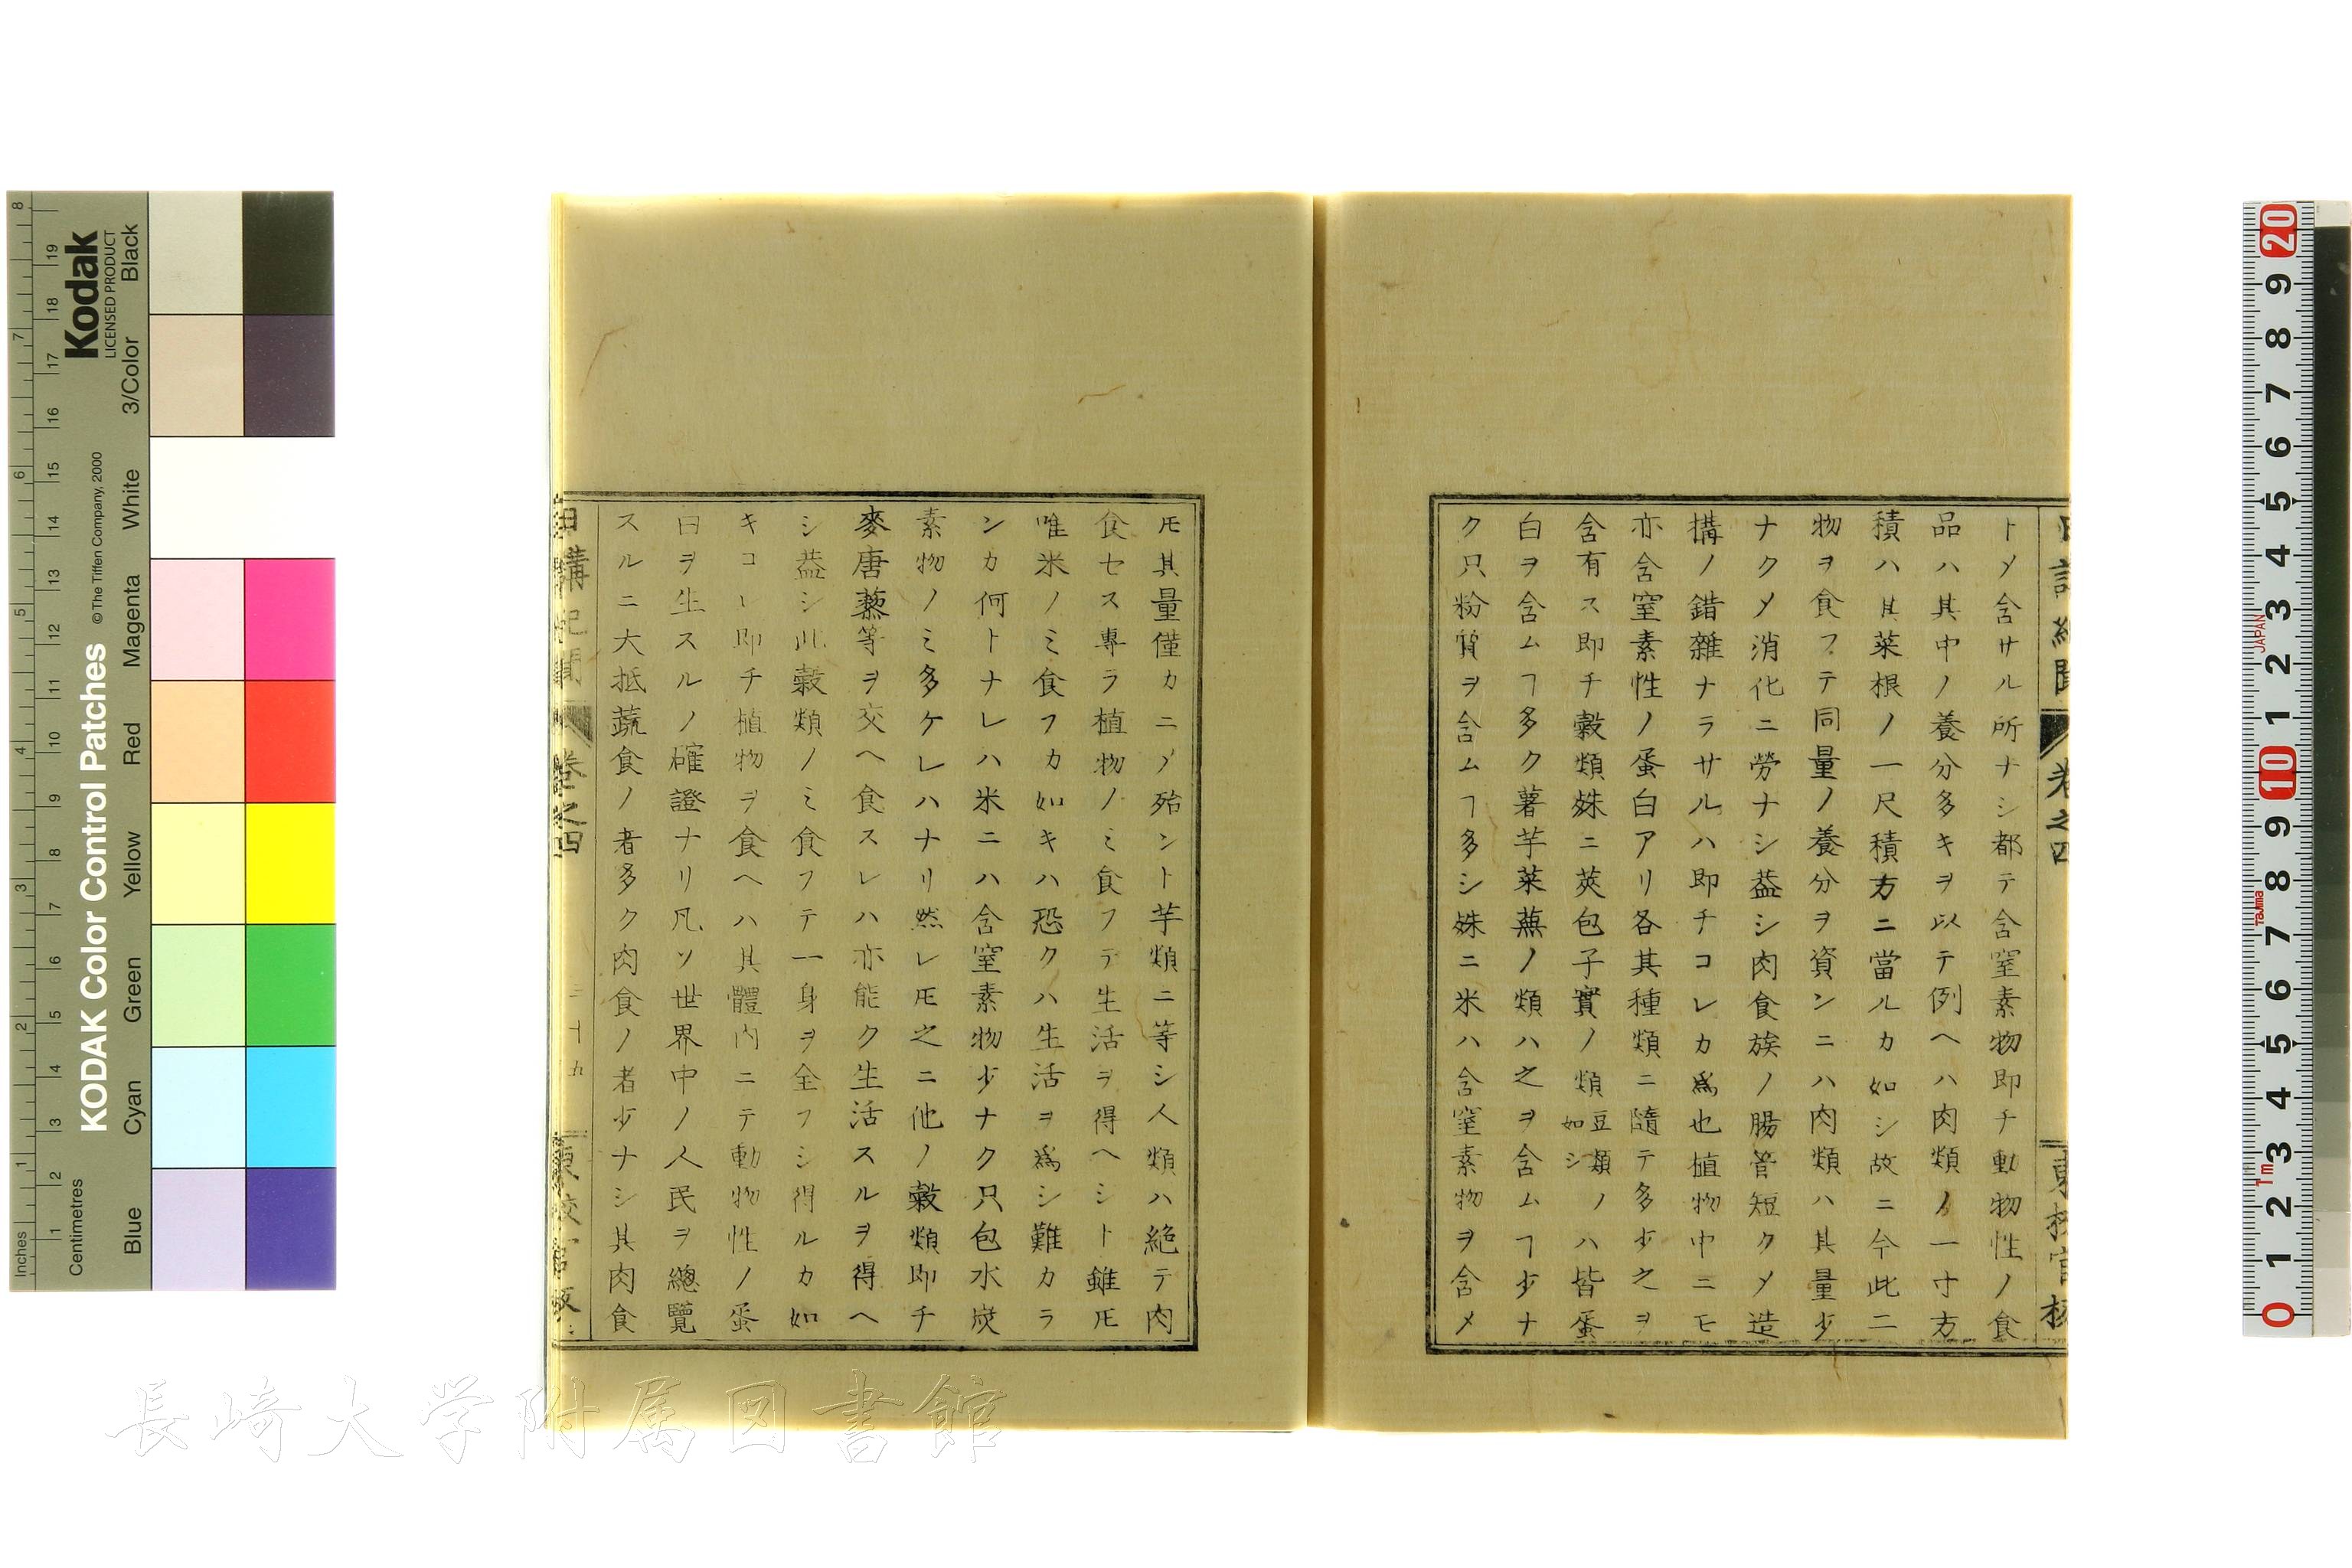 日講紀聞 卷之四 東校官板
トメ含サル所ナシ都テ含窒素物即チ動物性ノ食
品ハ其中ノ養分多キヲ以テ例ヘハ肉類ノ一寸方
積ハ其菜根ノ一尺積方ニ當ルカ如シ故ニ今此二
物ヲ食フテ同量ノ養分ヲ資ンニハ肉類ハ其量少
ナクメ消化ニ勞ナシ葢シ肉食族ノ腸管短クメ造
構ノ錯雜ナラサルハ即チコレカ爲也植物中ニモ
亦含窒素性ノ蛋白アリ各其種類ニ隨テ多少之ヲ
含有ス即チ穀類殊ニ莢包子實ノ類豆類ノ如シハ皆蛋
白ヲ含ムヿ多ク薯芋菜蕪ノ類ハ之ヲ含ムヿ少ナ
ク只粉質ヲ含ムヿ多シ殊ニ米ハ含窒素物ヲ含メ
𪜈其量僅カニメ殆ント芋類ニ等シ人類ハ絶テ肉
食セス專ラ植物ノミ食フテ生活ヲ得ヘシト雖𪜈
唯米ノミ食フカ如キハ恐クハ生活ヲ爲シ難カラ
ンカ何トナレハ米ニハ含窒素物少ナク只包水炭
素物ノミ多ケレハナリ然レ𪜈之ニ他ノ穀類即チ
麥唐藜等ヲ交ヘ食スレハ亦能ク生活スルヲ得ヘ
シ葢シ此穀類ノミ食フテ一身ヲ全フシ得ルカ如
キコレ即チ植物ヲ食ヘハ其體内ニテ動物性ノ蛋
白ヲ生スルノ確證ナリ凡ソ世界中ノ人民ヲ總覽
スルニ大抵蔬食ノ者多ク肉食ノ者少ナシ其肉食
日講紀聞 卷之四 三十九 東校官板
長崎大学附属図書館
Kodak
LICENSED PRODUCT
KODAK Color Control Patches
© The Tiffen Company, 2000
Inches 1 2 3 4 5 6 7 8
Centimetres 1 2 3 4 5 6 7 8 9 10 11 12 13 14 15 16 17 18 19
Blue Cyan Green Yellow Red Magenta White 3/Color Black
0 1 2 3 4 5 6 7 8 9 10 1 2 3 4 5 6 7 8 9 20
1m Tajima JAPAN